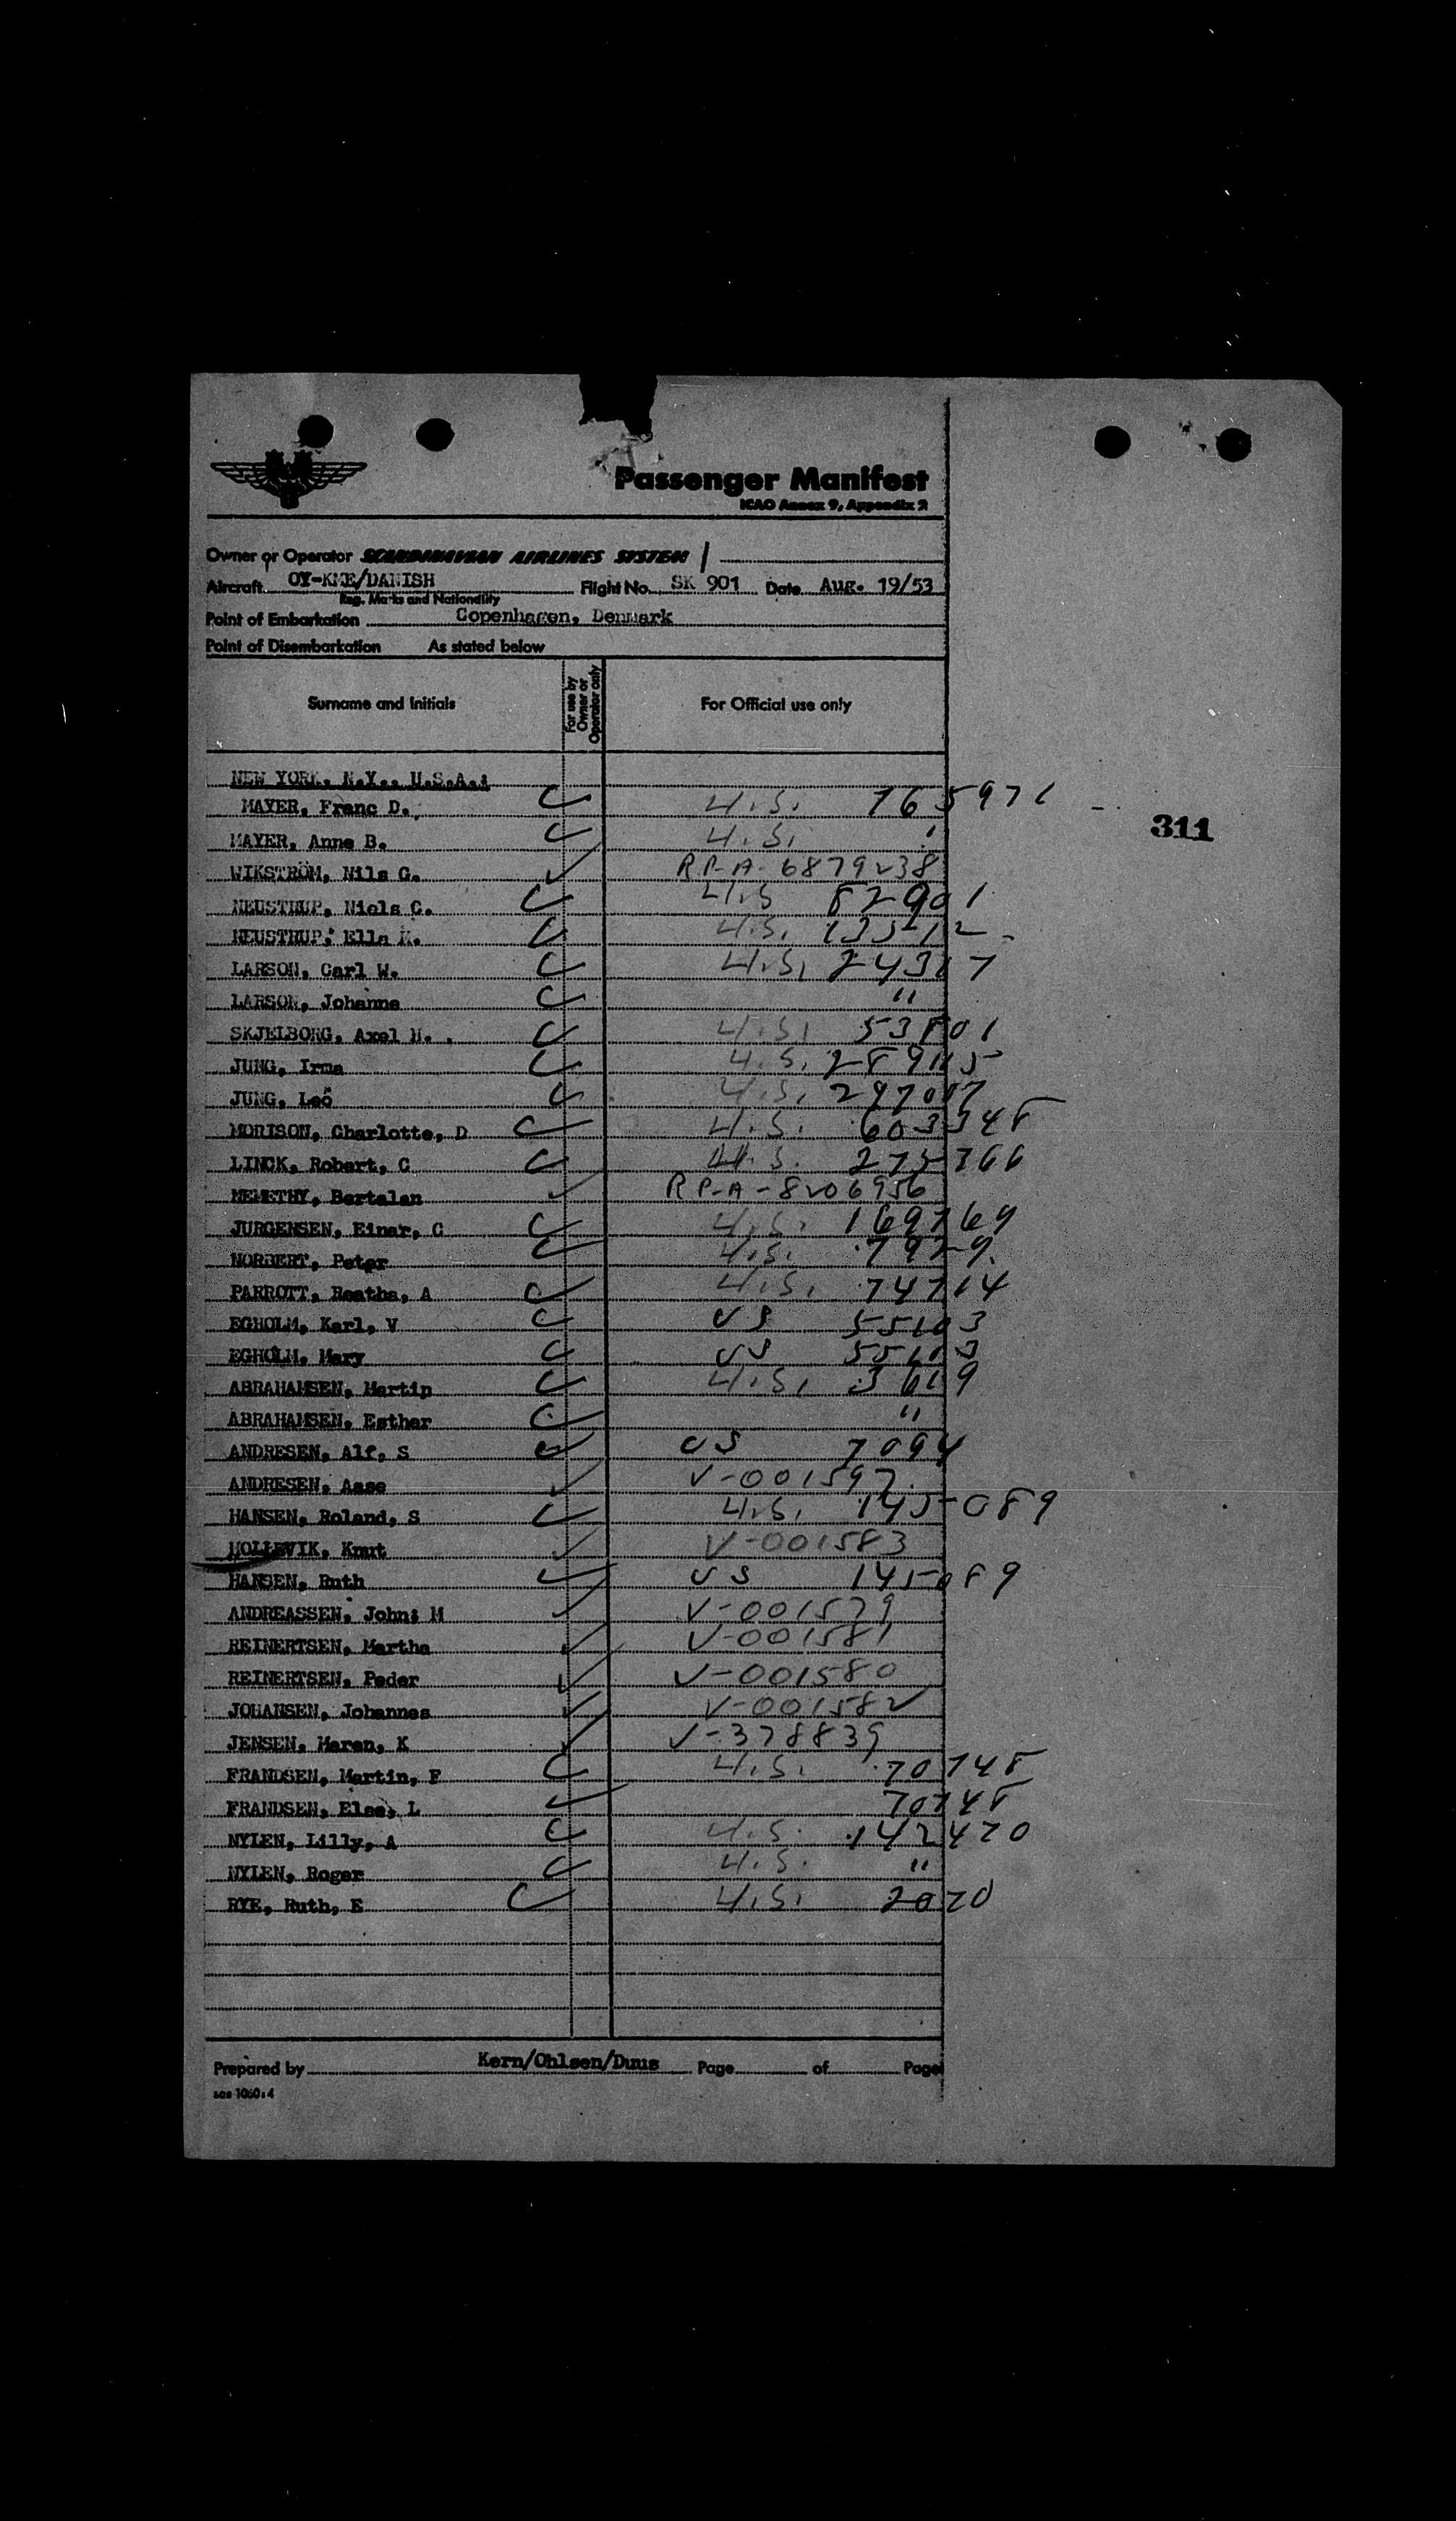 Passenger Manifest
ICAO Annex 9, Appendix 2
Owner or Operator SCANDINAVIAN AIRLINES SYSTEM
Aircraft OY-KME/DANISH Flight No. SK 901 Date Aug. 19/53
Reg. Marks and Nationality
Point of Embarkation Copenhagen, Denmark
Point of Disembarkation As stated below
Surname and Initials For use by Owner or Operator only For Official use only
NEW YORK, N.Y., U.S.A.:
MAYER, Franc D. U.S. 765971
311
MAYER, Anne B. U.S. "
WIKSTRÖM, Nils G. RP-A-6879238
NEUSTRUP, Niels C. U.S. 82901
NEUSTRUP, Ella K. U.S. 135712
LARSON, Carl W. U.S. 24317
LARSON, Johanne "
SKJELBORG, Axel H. U.S. 53801
JUNG, Irma U.S. 289115
JUNG, Leo U.S. 297017
MORISON, Charlotte, D U.S. 603348
LINCK, Robert, C U.S. 275766
NEMETHY, Bertalan RP-A-8206956
JURGENSEN, Einar, C U.S. 169769
NORBERT, Peter U.S. 79729
PARROTT, Reatha, A U.S. 74714
EGHOLM, Karl, V US 55103
EGHOLM, Mary US 55103
ABRAHAMSEN, Martin U.S. 3619
ABRAHAMSEN, Esther "
ANDRESEN, Alf, S US 7094
ANDRESEN, Aase V-001597
HANSEN, Roland, S U.S. 145089
HOLLEVIK, Knut V-001583
HANSEN, Ruth US 145089
ANDREASSEN, John; M V-001579
REINERTSEN, Martha V-001581
REINERTSEN, Peder V-001580
JOHANSEN, Johannes V-001582
JENSEN, Maren, K V-378839
FRANDSEN, Martin, F U.S. 70748
FRANDSEN, Else, L 70748
NYLEN, Lilly, A U.S. 142470
NYLEN, Roger U.S. "
RYE, Ruth, E U.S. 2070
Prepared by Kern/Ohlsen/Duus Page of Page
sas 1060:4